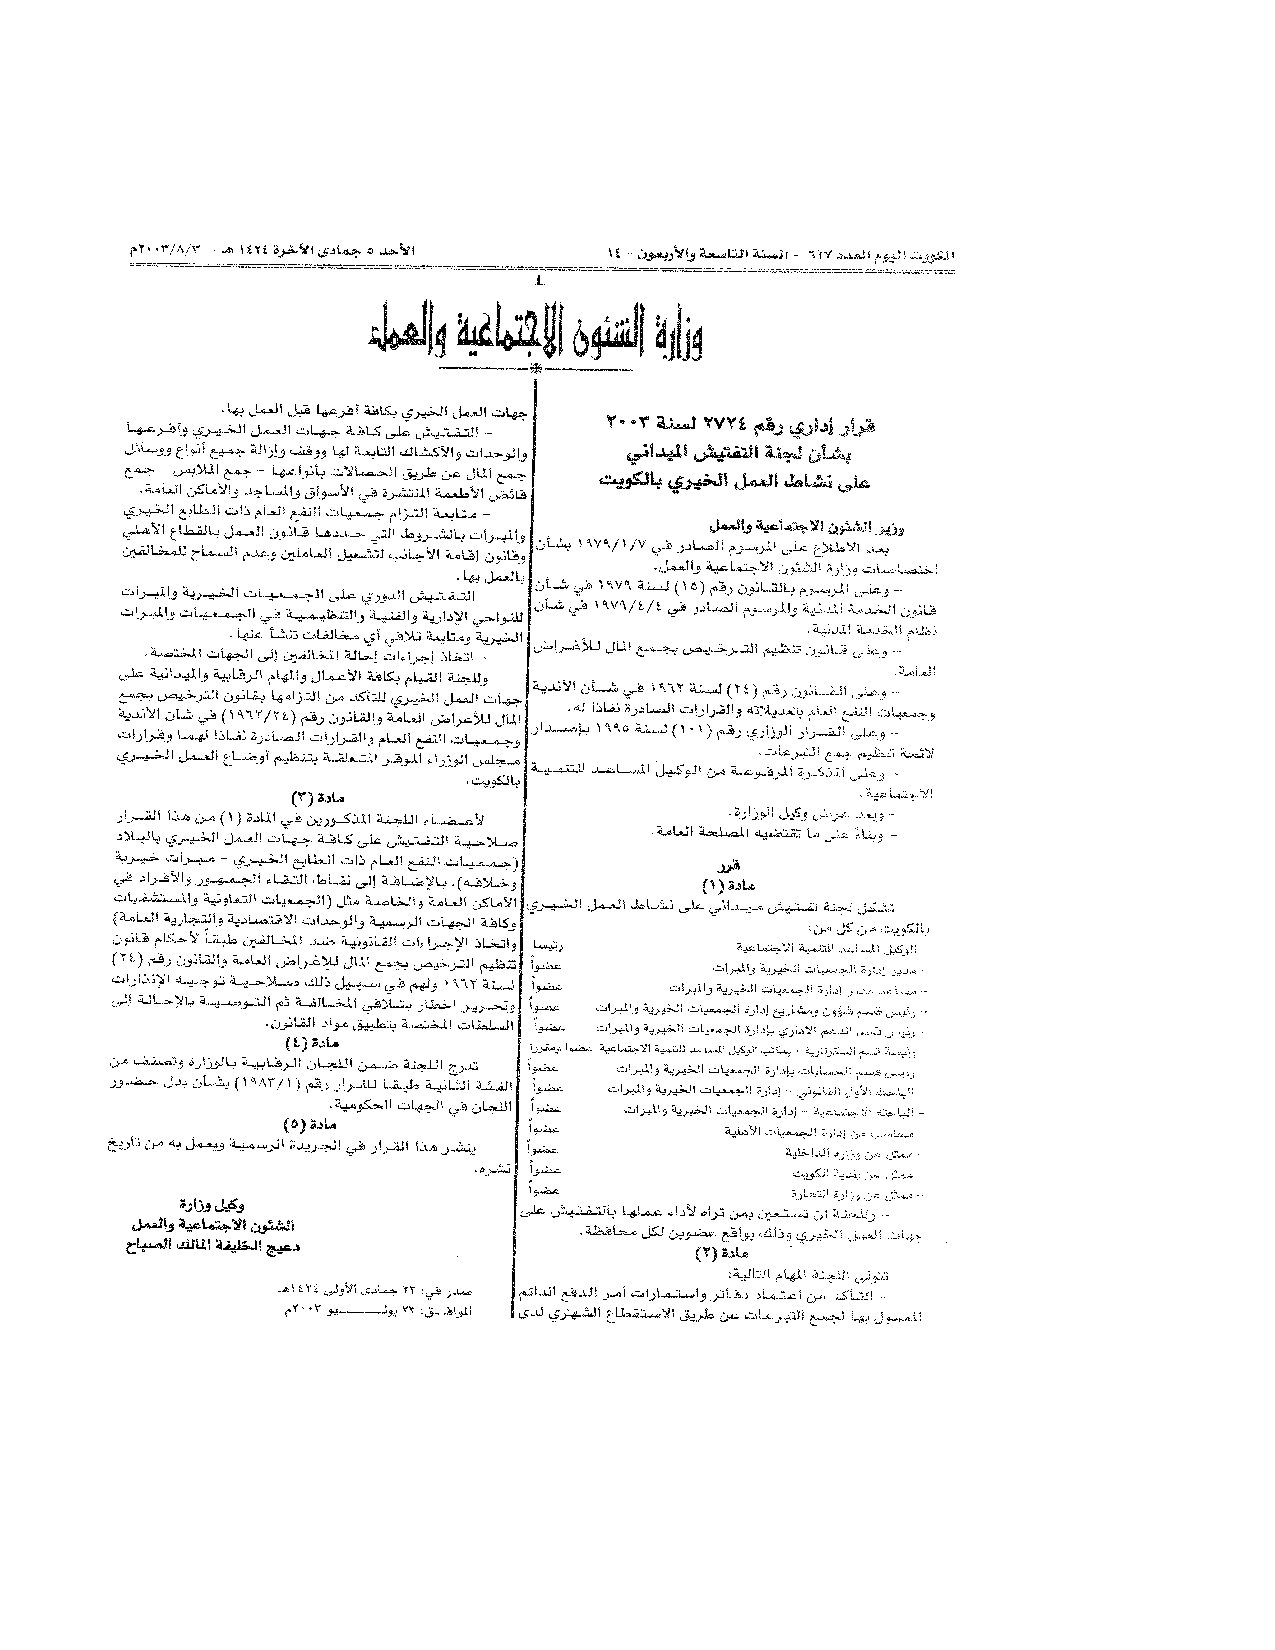 الكويت اليوم العدد ٦٢٧ - السنة التاسعة والأربعون - ١٤
الأحد ٥ جمادى الآخرة ١٤٢٤ هـ - ٢٠٠٣/٨/٣م
وزارة الشئون الاجتماعية والعمل
قرار إداري رقم ٢٧٢٤ لسنة ٢٠٠٣
بشأن لجنة التفتيش الميداني
على نشاط العمل الخيري بالكويت
وزير الشئون الاجتماعية والعمل
بعد الاطلاع على المرسوم الصادر في ١٩٧٩/١/٧ بشأن
اختصاصات وزارة الشئون الاجتماعية والعمل.
- وعلى المرسوم بالقانون رقم (١٥) لسنة ١٩٧٩ في شأن
قانون الخدمة المدنية والمرسوم الصادر في ١٩٧٩/٤/٤ في شأن
نظام الخدمة المدنية.
- وعلى قانون تنظيم الترخيص بجمع المال للأغراض
العامة.
- وعلى القانون رقم (٢٤) لسنة ١٩٦٢ في شأن الأندية
وجمعيات النفع العام بتعديلاته والقرارات الصادرة نفاذا له.
- وعلى القرار الوزاري رقم (١٠١) لسنة ١٩٩٥ بإصدار
لائحة تنظيم جمع التبرعات.
- وعلى المذكرة المرفوعة من الوكيل المساعد للتنمية
الاجتماعية.
- وبعد عرض وكيل الوزارة.
- وبناء على ما تقتضيه المصلحة العامة.
قرر
مادة (١)
تشكل لجنة تفتيش ميداني على نشاط العمل الخيري
بالكويت من كل من:
الوكيل المساعد للتنمية الاجتماعية رئيسا
- مدير إدارة الجمعيات الخيرية والمبرات عضواً
- مساعد مدير إدارة الجمعيات الخيرية والمبرات عضواً
- رئيس قسم شؤون ومشاريع إدارة الجمعيات الخيرية والمبرات عضواً
- رئيس قسم الدعم الإداري بإدارة الجمعيات الخيرية والمبرات عضواً
رئيسة قسم السكرتارية - مكتب الوكيل المساعد للتنمية الاجتماعية عضوا ومقررا
رئيس قسم الحسابات بإدارة الجمعيات الخيرية والمبرات عضواً
الباحث الأول القانوني - إدارة الجمعيات الخيرية والمبرات عضواً
- الباحثة الاجتماعية - إدارة الجمعيات الخيرية والمبرات عضواً
محاسب من إدارة الجمعيات الأهلية عضواً
- ممثل من وزارة الداخلية عضواً
ممثل من بلدية الكويت عضواً
- ممثل من وزارة التجارة عضواً
- وللجنة أن تستعين بمن تراه لأداء عملها بالتفتيش على
جهات العمل الخيري وذلك بواقع عضوين لكل محافظة.
مادة (٢)
تتولى اللجنة المهام التالية:
- التأكد من اعتماد دفاتر واستمارات أمر الدفع الدائم
المعمول بها لجمع التبرعات عن طريق الاستقطاع الشهري لدى
جهات العمل الخيري بكافة أفرعها قبل العمل بها.
- التفتيش على كافة جهات العمل الخيري وأفرعها
والوحدات والأكشاك التابعة لها ووقف وإزالة جميع أنواع ووسائل
جمع المال عن طريق الحصالات بأنواعها - جمع الملابس جمع
فائض الأطعمة المنتشرة في الأسواق والمساجد والأماكن العامة.
- متابعة التزام جمعيات النفع العام ذات الطابع الخيري
والمبرات بالشروط التي حددها قانون العمل بالقطاع الأهلي
وقانون إقامة الأجانب لتشغيل العاملين وعدم السماح للمخالفين
بالعمل بها.
التفتيش الدوري على الجمعيات الخيرية والمبرات
للنواحي الإدارية والفنية والتنظيمية في الجمعيات والمبرات
الخيرية ومتابعة تلافي أي مخالفات تنشأ عنها.
- اتخاذ إجراءات إحالة المخالفين إلى الجهات المختصة.
وللجنة القيام بكافة الأعمال والمهام الرقابية والميدانية على
جهات العمل الخيري للتأكد من التزامها بقانون الترخيص بجمع
المال للأغراض العامة والقانون رقم (١٩٦٢/٢٤) في شأن الأندية
وجمعيات النفع العام والقرارات الصادرة نفاذا لهما وقرارات
مجلس الوزراء الموقر المتعلقة بتنظيم أوضاع العمل الخيري
بالكويت.
مادة (٣)
لأعضاء اللجنة المذكورين في المادة (١) من هذا القرار
صلاحية التفتيش على كافة جهات العمل الخيري بالبلاد
(جمعيات النفع العام ذات الطابع الخيري - مبرات خيرية
وخلافه)، بالإضافة إلى نقاط التقاء الجمهور والأفراد في
الأماكن العامة والخاصة مثل (الجمعيات التعاونية والمستشفيات
وكافة الجهات الرسمية والوحدات الاقتصادية والتجارية العامة)
واتخاذ الإجراءات القانونية ضد المخالفين طبقاً لأحكام قانون
تنظيم الترخيص بجمع المال للإغراض العامة والقانون رقم (٢٤)
لسنة ١٩٦٢ ولهم في سبيل ذلك صلاحية توجيه الإنذارات
وتحرير اخطار بتلافي المخالفة ثم التوصية بالإحالة إلى
السلطات المختصة بتطبيق مواد القانون.
مادة (٤)
تدرج اللجنة ضمن اللجان الرقابية بالوزارة وتصنف من
الفئة الثانية طبقا للقرار رقم (١٩٨٣/١) بشأن بدل حضور
اللجان في الجهات الحكومية.
مادة (٥)
ينشر هذا القرار في الجريدة الرسمية ويعمل به من تاريخ
نشره.
وكيل وزارة
الشئون الاجتماعية والعمل
دعيج الخليفة المالك الصباح
صدر في: ٢٢ جمادى الأولى ١٤٢٤هـ
الموافق: ٢٢ يوليو ٢٠٠٣م